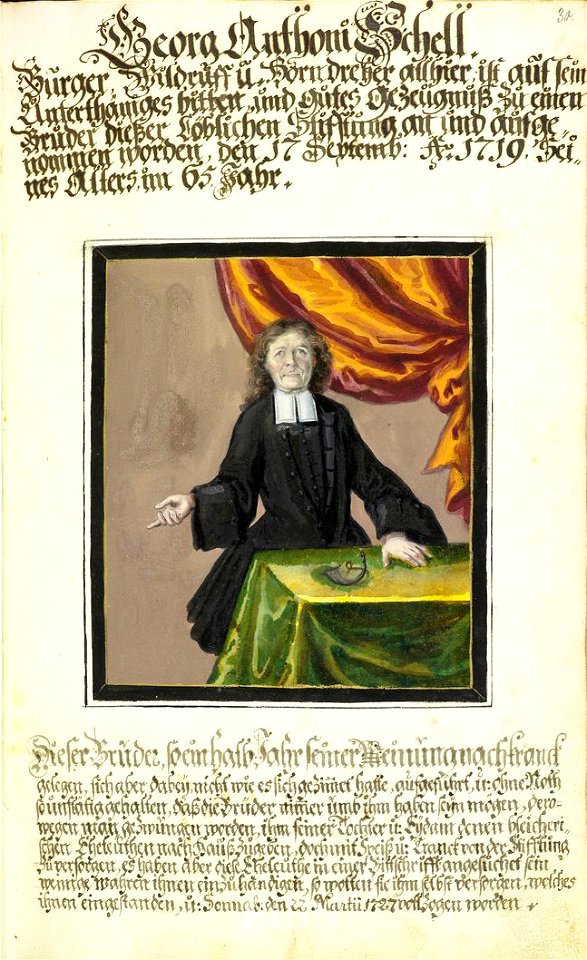 30
Georg Anthoni Schell.
Bürger, Bildruff u. Horndreher allhier, ist auf sein
Unterthäniges bitten, und gutes Gezeugnuß zu einen
Bruder dießer Löblichen Stifftung an und aufge
nommen worden, den 17 Septemb: Aº. 1719. Sei-
nes Alters, im 65 Jahr.
Dieser Bruder, so ein halb Jahr seiner Meinung nach kranck
gelegen, sich aber dabey nicht wie es sich gezimet hatte, aufgeführt, u: ohne Noth
so unflätig gehalten, daß die Brüder nimer umb ihm haben seyn mögen, dero-
wegen man gezwungen worden, ihm seiner Tochter u: Eydam denen
schen Eheleuthen nach Hauß zu geben, doch mit Speiß u: Tranck von der Stifftung
zu versorgen, es haben aber diese Eheleuthe in einer Bittschrifft angesuchet sein
wenige ihnen einzuhändigen, so wolten sie ihm selbst versorgen, welches
ihnen eingestanden, u: Sonnab: den 22 Martii 1727 vollzogen worden